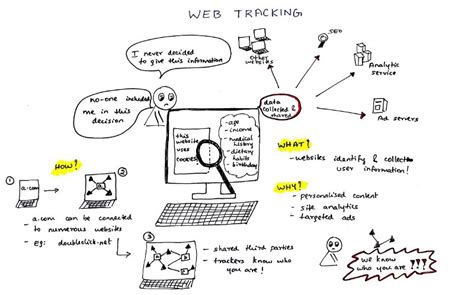 WEB TRACKING
I never decided
to give this information
no-one included
me in this
decision
Other
websites
SEO
Analytic
service
Ad servers
data
collected &
shared
this
website
uses
cookies!
- age
- income
- medical
history
- dietary
habits
- birthday
WHAT?
- websites identify & collect
user information!
WHY?
- personalised content
- site analytics
- targeted ads
HOW?
1
a.com
2
- a.com can be connected
- to numerous websites
- Eg: doubleclick.net
3
- shared third parties
- trackers know who
you are!
we know
who you are!!!